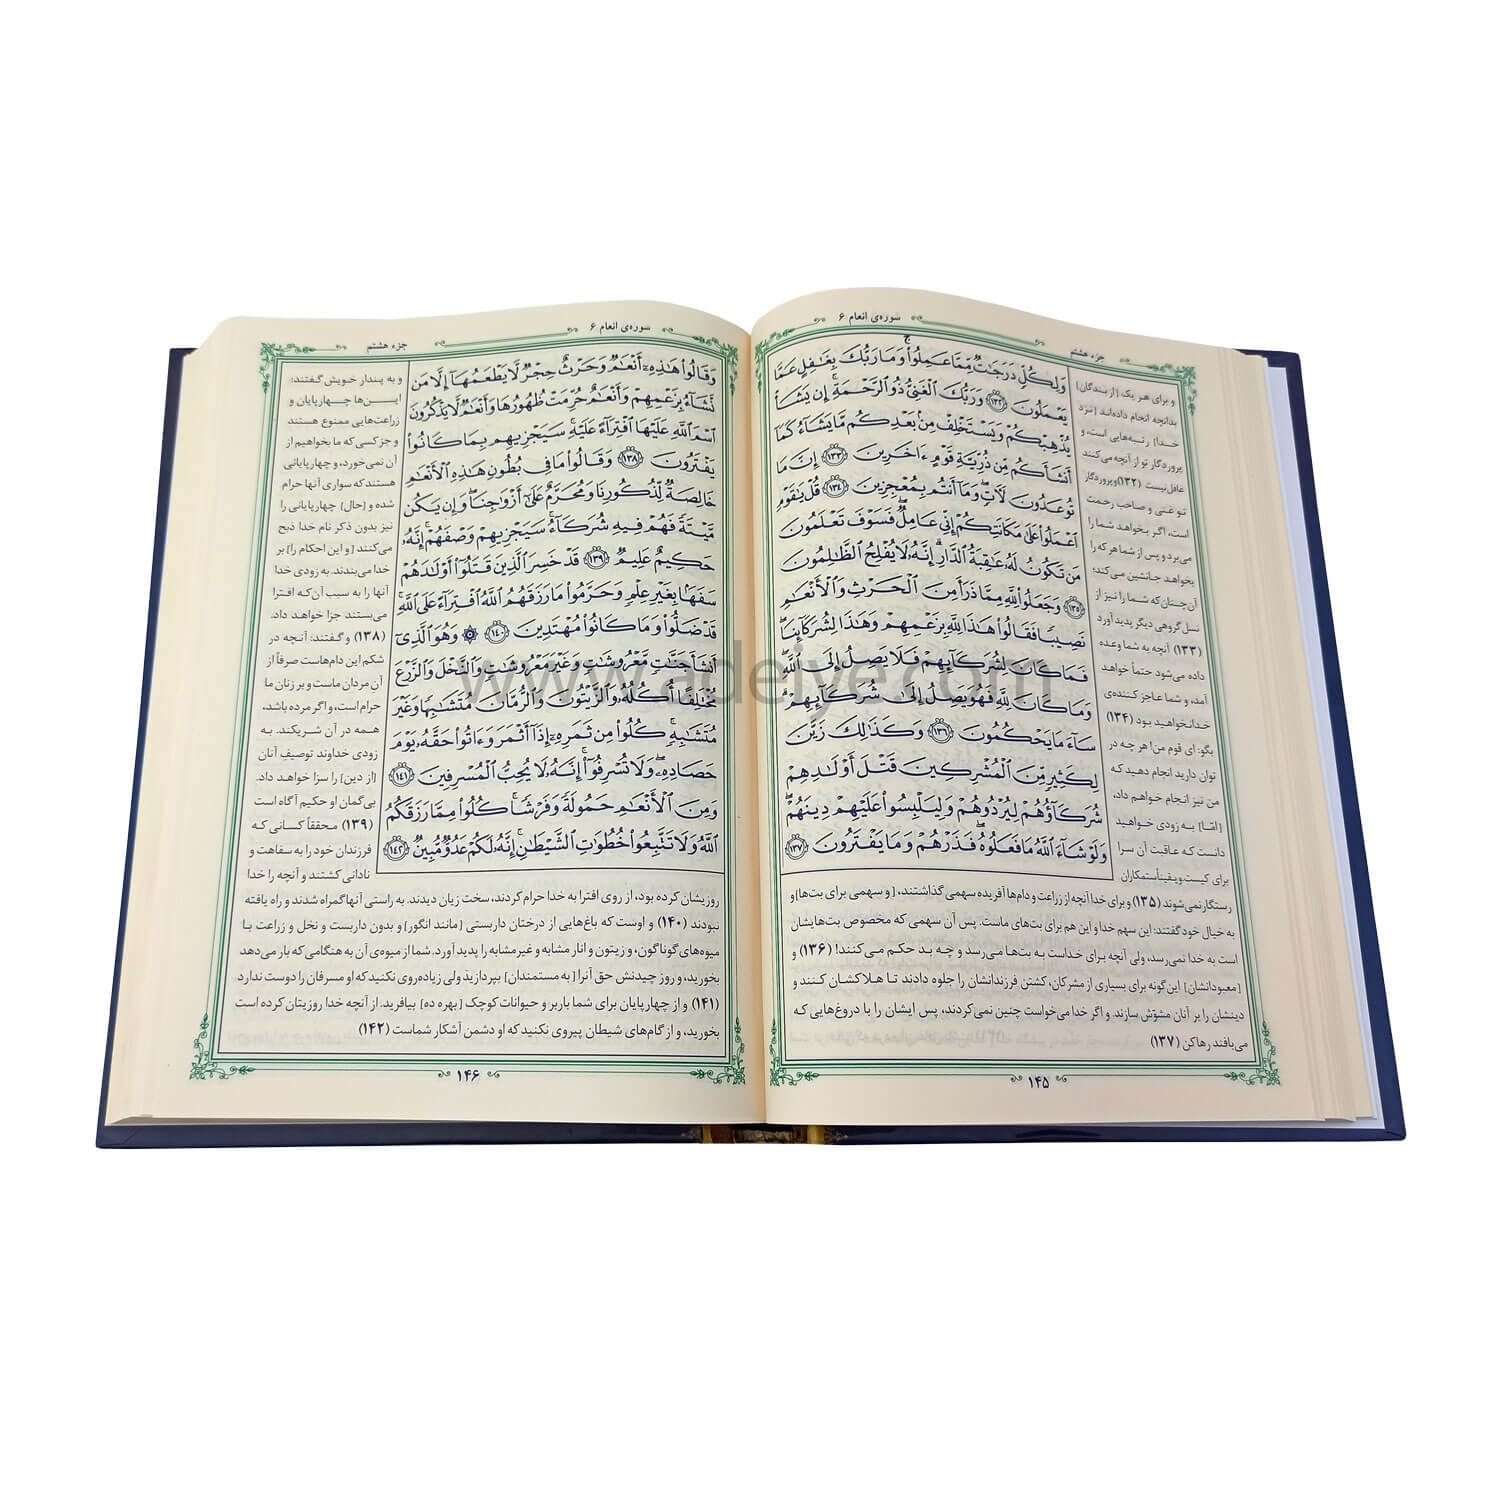 سوره‌ی انعام ۶
جزء هشتم
وَلِكُلٍّ دَرَجَٰتٌ مِّمَّا عَمِلُوا۟ ۚ وَمَا رَبُّكَ بِغَٰفِلٍ عَمَّا
يَعْمَلُونَ ﴿١٣٢﴾ وَرَبُّكَ ٱلْغَنِىُّ ذُو ٱلرَّحْمَةِ ۚ إِن يَشَأْ
يُذْهِبْكُمْ وَيَسْتَخْلِفْ مِنۢ بَعْدِكُم مَّا يَشَآءُ كَمَآ
أَنشَأَكُم مِّن ذُرِّيَّةِ قَوْمٍ ءَاخَرِينَ ﴿١٣٣﴾ إِنَّ مَا
تُوعَدُونَ لَءَاتٍ ۖ وَمَآ أَنتُم بِمُعْجِزِينَ ﴿١٣٤﴾ قُلْ يَٰقَوْمِ
ٱعْمَلُوا۟ عَلَىٰ مَكَانَتِكُمْ إِنِّى عَامِلٌ ۖ فَسَوْفَ تَعْلَمُونَ
مَن تَكُونُ لَهُۥ عَٰقِبَةُ ٱلدَّارِ ۗ إِنَّهُۥ لَا يُفْلِحُ ٱلظَّٰلِمُونَ
﴿١٣٥﴾ وَجَعَلُوا۟ لِلَّهِ مِمَّا ذَرَأَ مِنَ ٱلْحَرْثِ وَٱلْأَنْعَٰمِ
نَصِيبًا فَقَالُوا۟ هَٰذَا لِلَّهِ بِزَعْمِهِمْ وَهَٰذَا لِشُرَكَآئِنَا ۖ
فَمَا كَانَ لِشُرَكَآئِهِمْ فَلَا يَصِلُ إِلَى ٱللَّهِ ۖ
وَمَا كَانَ لِلَّهِ فَهُوَ يَصِلُ إِلَىٰ شُرَكَآئِهِمْ ۗ
سَآءَ مَا يَحْكُمُونَ ﴿١٣٦﴾ وَكَذَٰلِكَ زَيَّنَ
لِكَثِيرٍ مِّنَ ٱلْمُشْرِكِينَ قَتْلَ أَوْلَٰدِهِمْ
شُرَكَآؤُهُمْ لِيُرْدُوهُمْ وَلِيَلْبِسُوا۟ عَلَيْهِمْ دِينَهُمْ ۖ
وَلَوْ شَآءَ ٱللَّهُ مَا فَعَلُوهُ ۖ فَذَرْهُمْ وَمَا يَفْتَرُونَ ﴿١٣٧﴾
و برای هر یک [از بندگان]
بدانچه انجام داده‌اند [نزد
خدا] رتبه‌هایی است، و
پروردگار تو از آنچه می‌کنند
غافل نیست (۱۳۲) و پروردگار
تو غنی و صاحب رحمت
است، اگر بخواهد شما را
می‌برد و پس از شما هر که را
بخواهد جانشین می‌کند؛
آن‌چنان‌که شما را نیز از
نسل گروهی دیگر پدید آورد
(۱۳۳) آنچه به شما وعده
داده می‌شود حتماً خواهد
آمد، و شما عاجز کننده‌ی
خدا نخواهید بود (۱۳۴)
بگو: ای قوم من! هر چه در
توان دارید انجام دهید که
من نیز انجام خواهم داد،
[امّا] به زودی خواهید
دانست که عاقبت آن سرا
برای کیست و یقیناً ستمکاران
رستگار نمی‌شوند (۱۳۵) و برای خدا آنچه از زراعت و دام‌ها آفریده سهمی گذاشتند، [و سهمی برای بت‌ها] و
به خیال خود گفتند: این سهم خدا و این هم برای بت‌های ماست. پس آن سهمی که مخصوص بت‌هایشان
است به خدا نمی‌رسد، ولی آنچه برای خداست به بت‌ها می‌رسد و چه بد حکم می‌کنند! (۱۳۶) و
[معبودانشان] این‌گونه برای بسیاری از مشرکان، کشتن فرزندانشان را جلوه دادند تا هلاکشان کنند و
دینشان را بر آنان مشوّش سازند. و اگر خدا می‌خواست چنین نمی‌کردند، پس ایشان را با دروغ‌هایی که
می‌بافند رها کن (۱۳۷)
۱۴۵
سوره‌ی انعام ۶
جزء هشتم
وَقَالُوا۟ هَٰذِهِۦٓ أَنْعَٰمٌ وَحَرْثٌ حِجْرٌ لَّا يَطْعَمُهَآ إِلَّا مَن
نَّشَآءُ بِزَعْمِهِمْ وَأَنْعَٰمٌ حُرِّمَتْ ظُهُورُهَا وَأَنْعَٰمٌ لَّا يَذْكُرُونَ
ٱسْمَ ٱللَّهِ عَلَيْهَا ٱفْتِرَآءً عَلَيْهِ ۚ سَيَجْزِيهِم بِمَا كَانُوا۟
يَفْتَرُونَ ﴿١٣٨﴾ وَقَالُوا۟ مَا فِى بُطُونِ هَٰذِهِ ٱلْأَنْعَٰمِ
خَالِصَةٌ لِّذُكُورِنَا وَمُحَرَّمٌ عَلَىٰٓ أَزْوَٰجِنَا ۖ وَإِن يَكُن
مَّيْتَةً فَهُمْ فِيهِ شُرَكَآءُ ۚ سَيَجْزِيهِمْ وَصْفَهُمْ ۚ إِنَّهُۥ
حَكِيمٌ عَلِيمٌ ﴿١٣٩﴾ قَدْ خَسِرَ ٱلَّذِينَ قَتَلُوٓا۟ أَوْلَٰدَهُمْ
سَفَهًۢا بِغَيْرِ عِلْمٍ وَحَرَّمُوا۟ مَا رَزَقَهُمُ ٱللَّهُ ٱفْتِرَآءً عَلَى ٱللَّهِ ۚ
قَدْ ضَلُّوا۟ وَمَا كَانُوا۟ مُهْتَدِينَ ﴿١٤٠﴾ ۞ وَهُوَ ٱلَّذِىٓ
أَنشَأَ جَنَّٰتٍ مَّعْرُوشَٰتٍ وَغَيْرَ مَعْرُوشَٰتٍ وَٱلنَّخْلَ وَٱلزَّرْعَ
مُخْتَلِفًا أُكُلُهُۥ وَٱلزَّيْتُونَ وَٱلرُّمَّانَ مُتَشَٰبِهًا وَغَيْرَ
مُتَشَٰبِهٍ ۚ كُلُوا۟ مِن ثَمَرِهِۦٓ إِذَآ أَثْمَرَ وَءَاتُوا۟ حَقَّهُۥ يَوْمَ
حَصَادِهِۦ ۖ وَلَا تُسْرِفُوٓا۟ ۚ إِنَّهُۥ لَا يُحِبُّ ٱلْمُسْرِفِينَ ﴿١٤١﴾
وَمِنَ ٱلْأَنْعَٰمِ حَمُولَةً وَفَرْشًا ۚ كُلُوا۟ مِمَّا رَزَقَكُمُ
ٱللَّهُ وَلَا تَتَّبِعُوا۟ خُطُوَٰتِ ٱلشَّيْطَٰنِ ۚ إِنَّهُۥ لَكُمْ عَدُوٌّ مُّبِينٌ ﴿١٤٢﴾
و به پندار خویش گفتند:
این‌ها چهارپایان و
زراعت‌هایی ممنوع هستند
و جز کسی که ما بخواهیم از
آن نمی‌خورد، و چهارپایانی
هستند که سواری آنها حرام
شده و [حال] چهارپایانی را
نیز بدون ذکر نام خدا ذبح
می‌کنند [و این احکام را] بر
خدا می‌بندند. به زودی خدا
آنها را به سبب آن‌که افترا
می‌بستند جزا خواهد داد.
(۱۳۸) و گفتند: آنچه در
شکم این دام‌هاست صرفاً از
آنِ مردان ماست و بر زنان ما
حرام است، و اگر مرده باشد،
همه در آن شریکند. به
زودی خداوند توصیفِ آنان
[از دین] را سزا خواهد داد.
بی‌گمان او حکیم آگاه است
(۱۳۹) محققاً کسانی که
فرزندان خود را به سفاهت و
نادانی کشتند و آنچه را خدا
روزیشان کرده بود، از روی افترا به خدا حرام کردند، سخت زیان دیدند. به راستی آنها گمراه شدند و راه یافته
نبودند (۱۴۰) و اوست که باغ‌هایی از درختان داربستی [مانند انگور] و بدون داربست و نخل و زراعت با
میوه‌های گوناگون، و زیتون و انار مشابه و غیر مشابه را پدید آورد. شما از میوه‌ی آن به هنگامی که بار می‌دهد
بخورید، و روز چیدنش حق آنرا [به مستمندان] بپردازید ولی زیاده‌روی نکنید که او مسرفان را دوست ندارد.
(۱۴۱) و از چهارپایان برای شما باربر و حیوانات کوچک [بهره ده] بیافرید. از آنچه خدا روزیتان کرده است
بخورید، و از گام‌های شیطان پیروی نکنید که او دشمن آشکار شماست (۱۴۲)
۱۴۶
www.adeiye.com